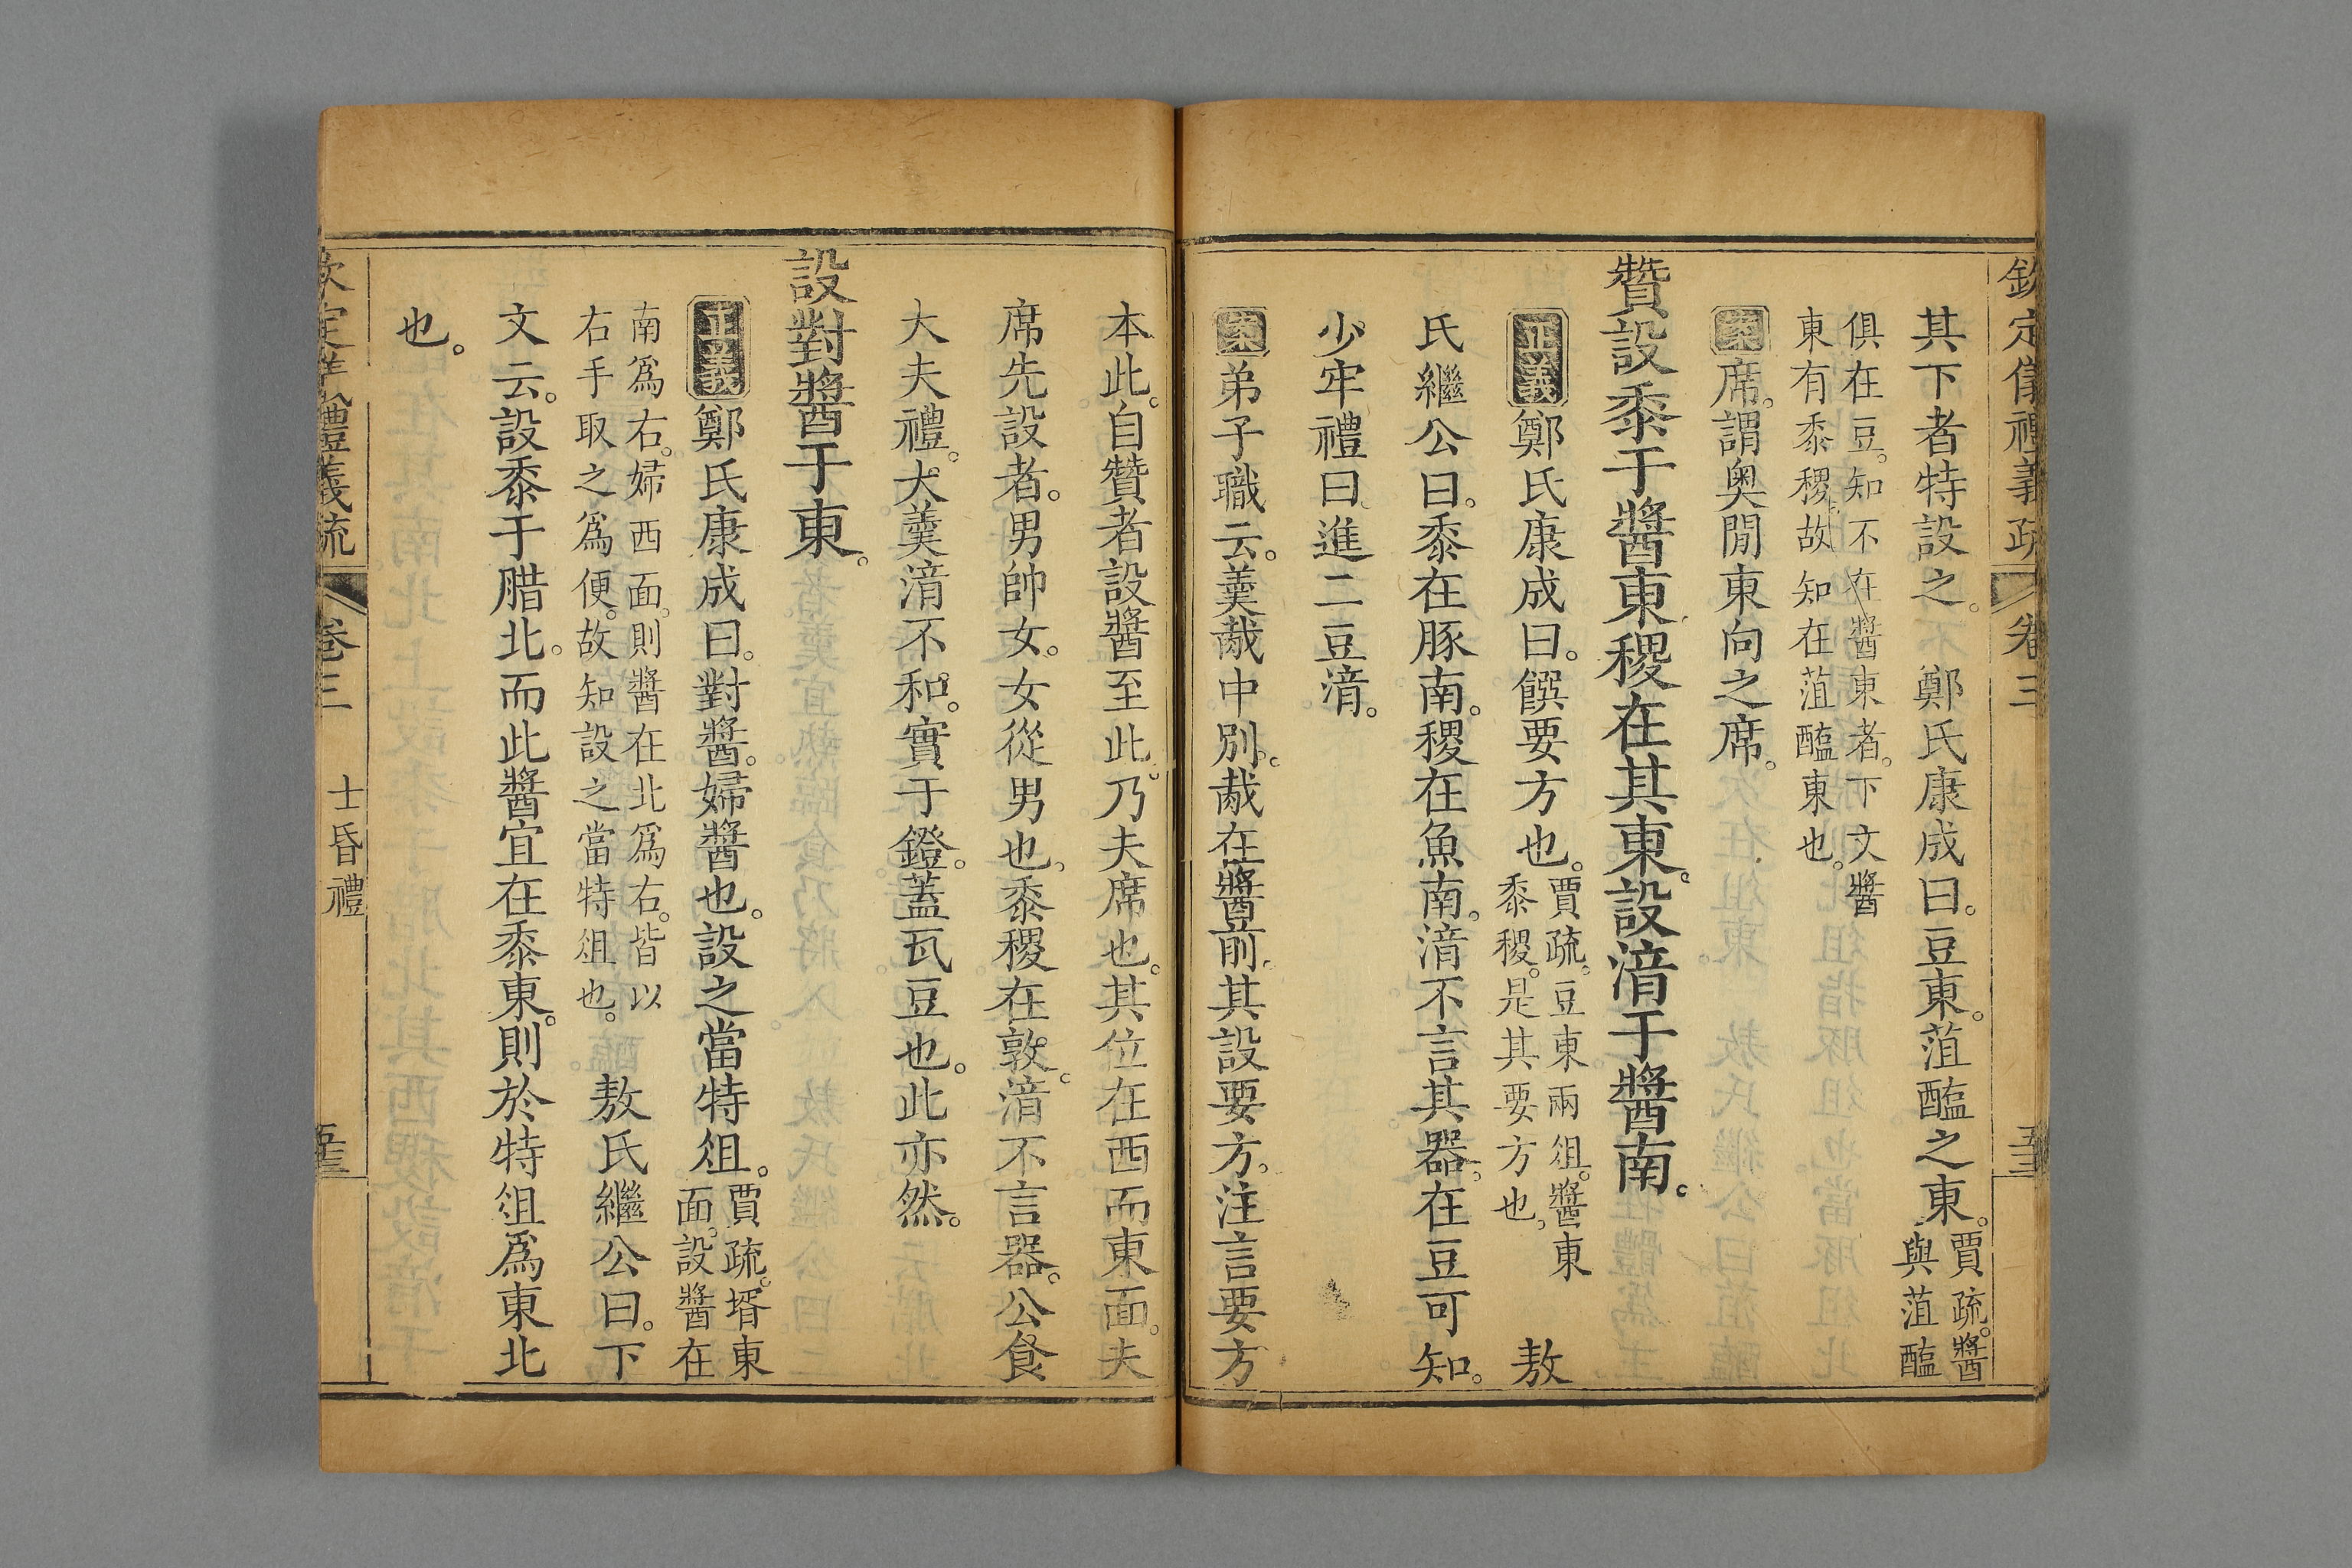 欽定儀禮義疏 卷三 五三
其下者特設之。 鄭氏康成曰。豆東。菹醢之東。賈疏。醬與菹醢
俱在豆。知不在醬東者。下文醬東有黍稷。故知在菹醢東也。
案席。謂奥閒東向之席。
贊設黍于醬東。稷在其東。設湆于醬南。
正義鄭氏康成曰。饌要方也。賈疏。豆東兩俎。醬東黍稷。是其要方也。 敖
氏繼公曰。黍在豚南。稷在魚南。湆不言其器。在豆可知。
少牢禮曰。進二豆湆。
案弟子職云。羹胾中別。胾在醬前。其設要方。注言要方
本此。自贊者設醬至此。乃夫席也。其位在西而東面。夫
席先設者。男帥女。女從男也。黍稷在敦。湆不言器。公食
大夫禮。大羹湆不和。實于鐙。蓋瓦豆也。此亦然。
設對醬于東。
正義鄭氏康成曰。對醬。婦醬也。設之當特俎。賈疏。壻東面。設醬在
南爲右。婦西面。則醬在北爲右。皆以右手取之爲便。故知設之當特俎也。 敖氏繼公曰。下
文云。設黍于腊北。而此醬宜在黍東。則於特俎爲東北
也。
欽定儀禮義疏 卷三 士昏禮 五三